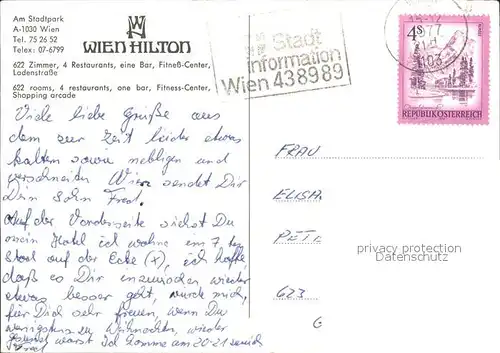 Am Stadtpark
A-1030 Wien
Tel. 75 26 52
Telex: 07-6799
WIEN HILTON
622 Zimmer, 4 Restaurants, eine Bar, Fitneß-Center,
Ladenstraße
622 rooms, 4 restaurants, one bar, Fitness-Center,
Shopping arcade
Stadt
information
Wien 43 89 89
77
1103
4S
REPUBLIK ÖSTERREICH
Viele liebe Grüße aus
dem zur Zeit leider etwas
kalten sowie nebligen und
verschneiten Wien sendet Dir
Dein Sohn Fred.
Auf der Vorderseite siehst Du
mein Hotel ich wohne im 7. ten
Stock auf der Ecke (x), ich hoffe
daß es Dir inzwischen wieder
etwas besser geht, würde mich
für Dich sehr freuen, wenn Du
wenigstens zu Weihnachten, wieder
gesund wärst Ich komme am 20-21 zurück
Fred
FRAU
ELISA
PETE
623
G
privacy protection
WATERMARK